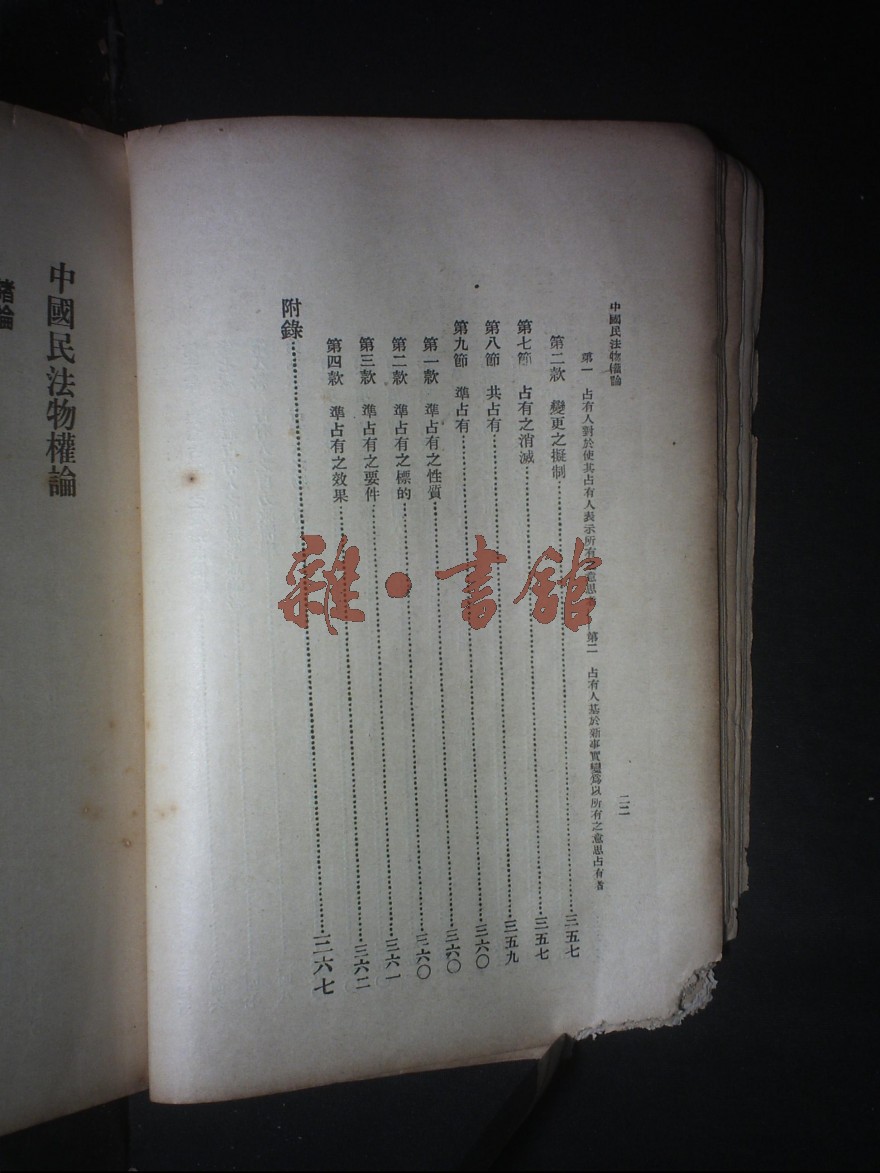 中國民法物權論 二二
第一 占有人對於使其占有人表示所有 意思 第二 占有人基於新事實變爲以所有之意思占有者
第二款 變更之擬制……三五七
第七節 占有之消滅……三五七
第八節 共占有……三五九
第九節 準占有……三六〇
第一款 準占有之性質……三六〇
第二款 準占有之標的……三六〇
第三款 準占有之要件……三六一
第四款 準占有之效果……三六二
附錄……六七
中國民法物權論
緒論
雜·書館